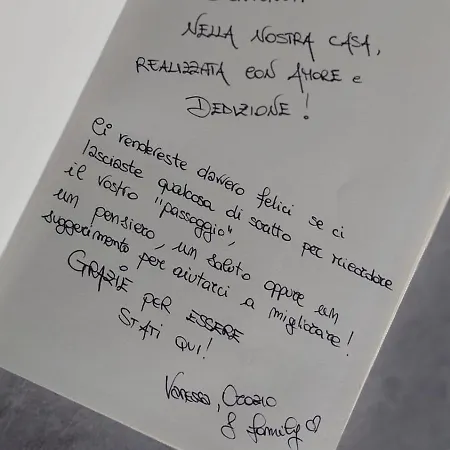 NELLA NOSTRA CASA,
REALIZZATA CON AMORE e
DEDIZIONE!
Ci rendereste davvero felici se ci
lasciaste qualcosa di scatto per ricordare
il vostro "passaggio",
un pensiero, un saluto oppure un
suggerimento per aiutarci a migliorare!
GRAZIE PER ESSERE
STATI QUI!
Vanessa, Orazio
& family ♡